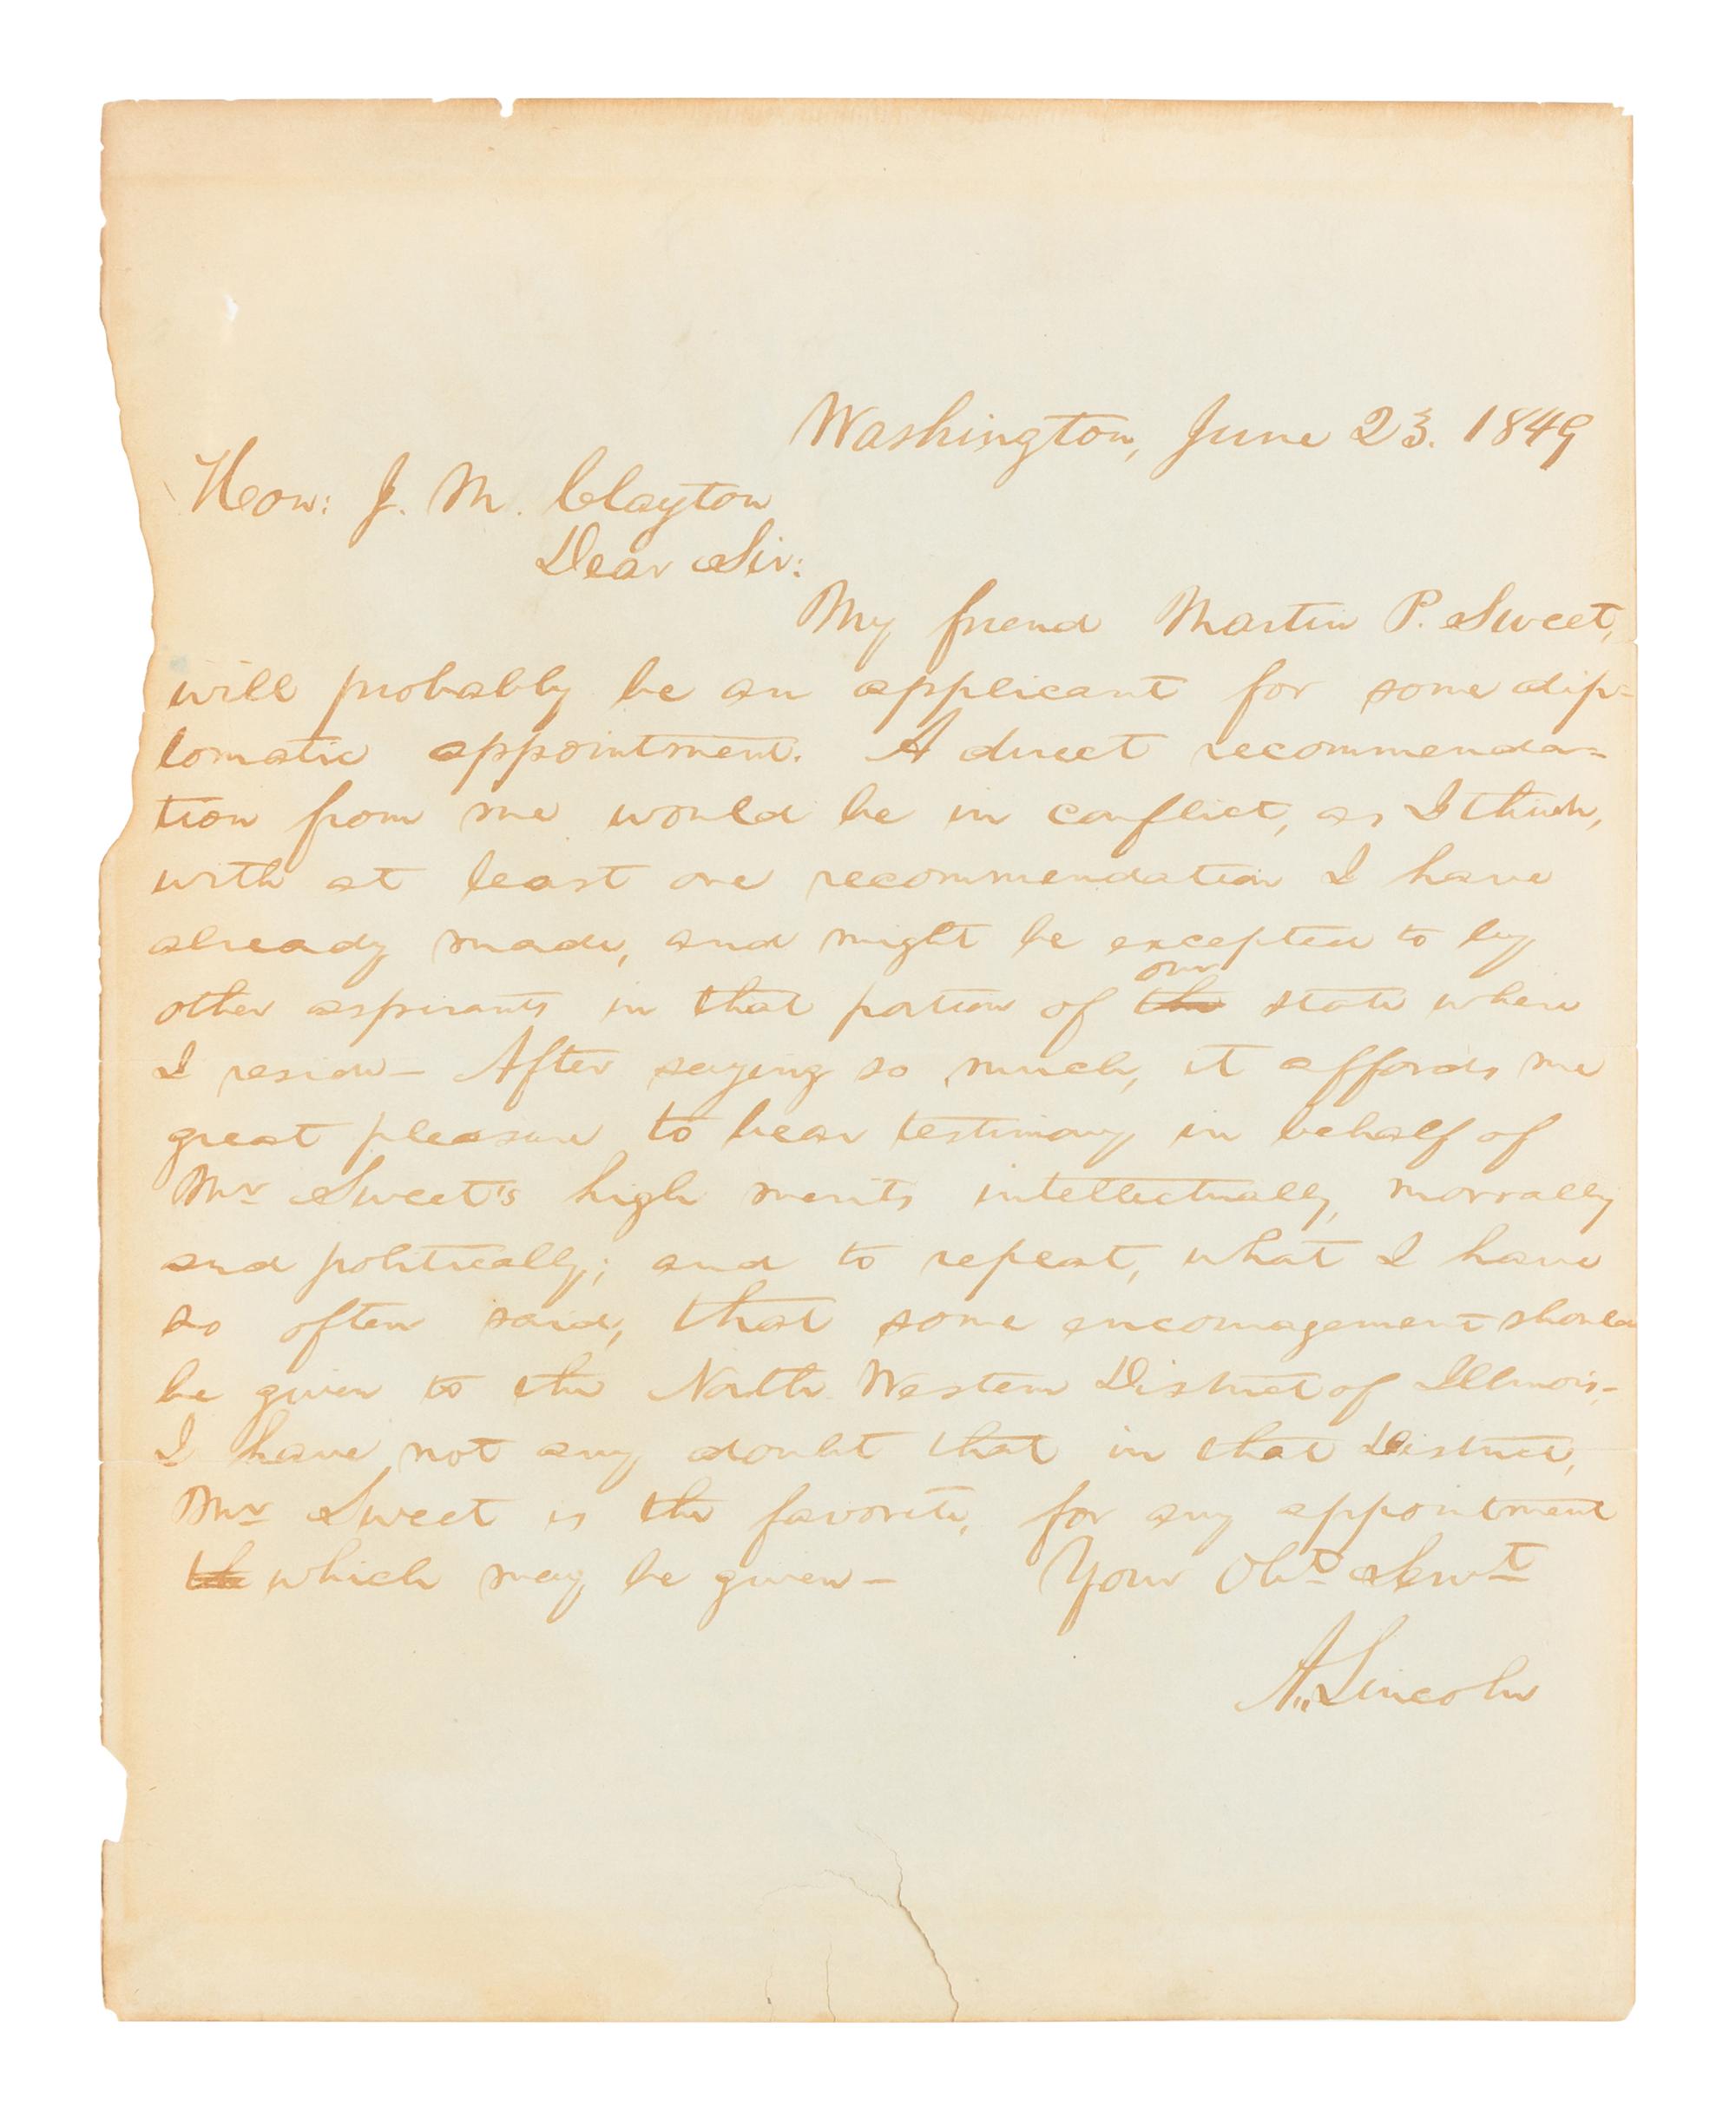 Washington, June 23. 1849
Hon: J. M. Clayton
Dear Sir:
My friend Martin P. Sweet,
will probably be an applicant for some dip-
lomatic appointment. A direct recommenda-
tion from me would be in conflict, as I think,
with at least one recommendation I have
already made, and might be excepted to by
our
other aspirants in that portion of the state where
I reside— After saying so much, it affords me
great pleasure to bear testimony in behalf of
Mr Sweet's high merits intellectually, morrally
and politically; and to repeat, what I have
so often said, that some encouragement should
be given to the North Western District of Illinois—
I have not any doubt that in that District,
Mr Sweet is the favorite, for any appointment
which may be given— Your Obt Servt
A. Lincoln